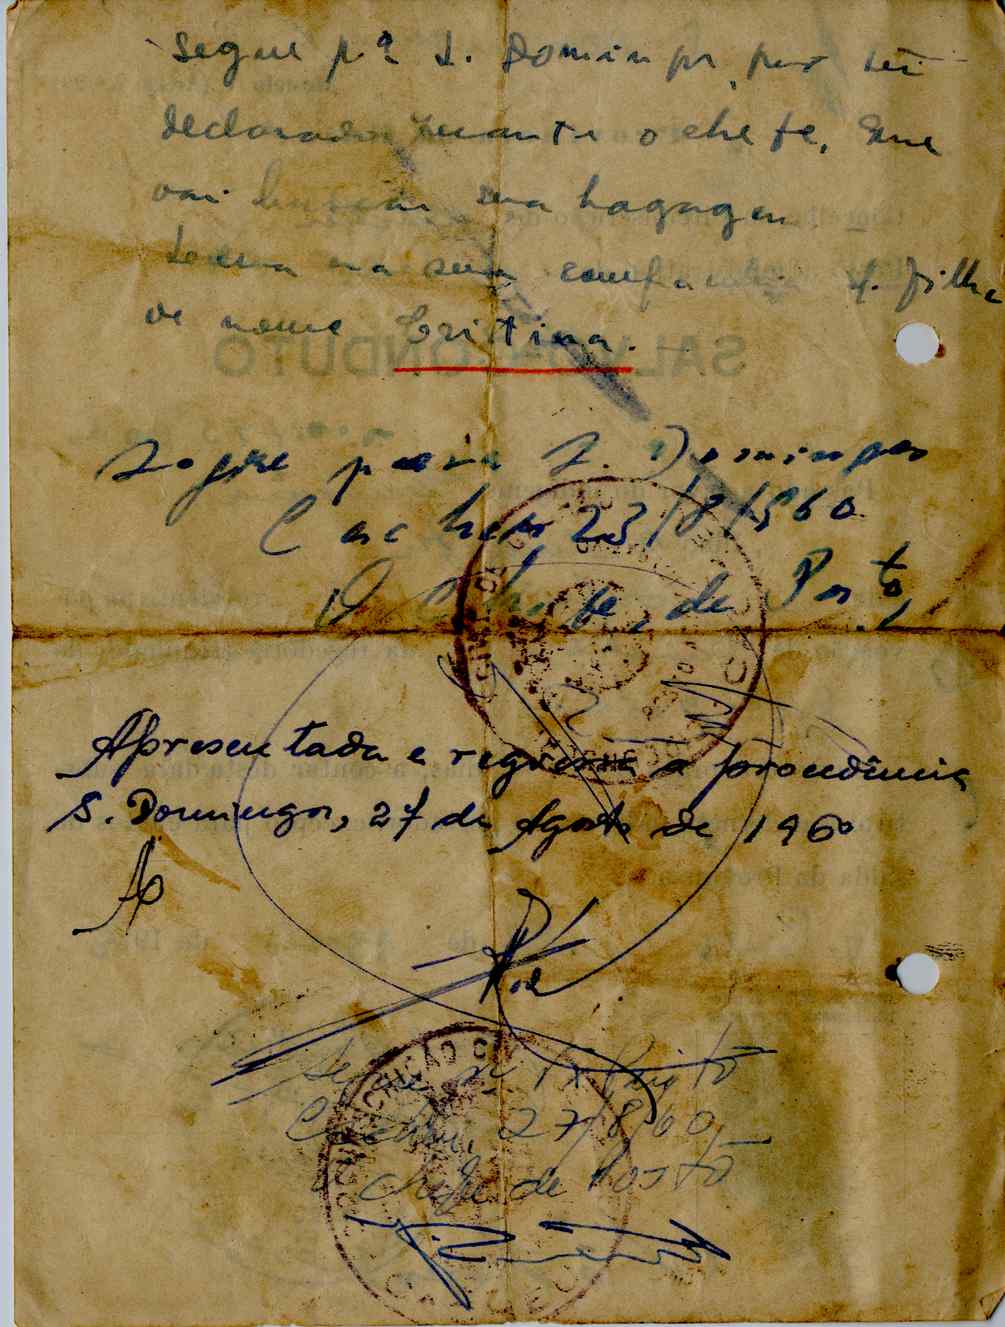 Segue pª S. Domingos, por ter
declarado perante o chefe, que
vai buscar sua bagagem
Leva na sua companhia 1 filha
de nome Cristina.
Segue para S. Domingos
Cacheu 23/8/1960
O chefe de Posto,
Apresentada e regressa a procedência
S. Domingos, 27 de Agosto de 1960
Cacheu, 27/8/60
Chefe de Posto